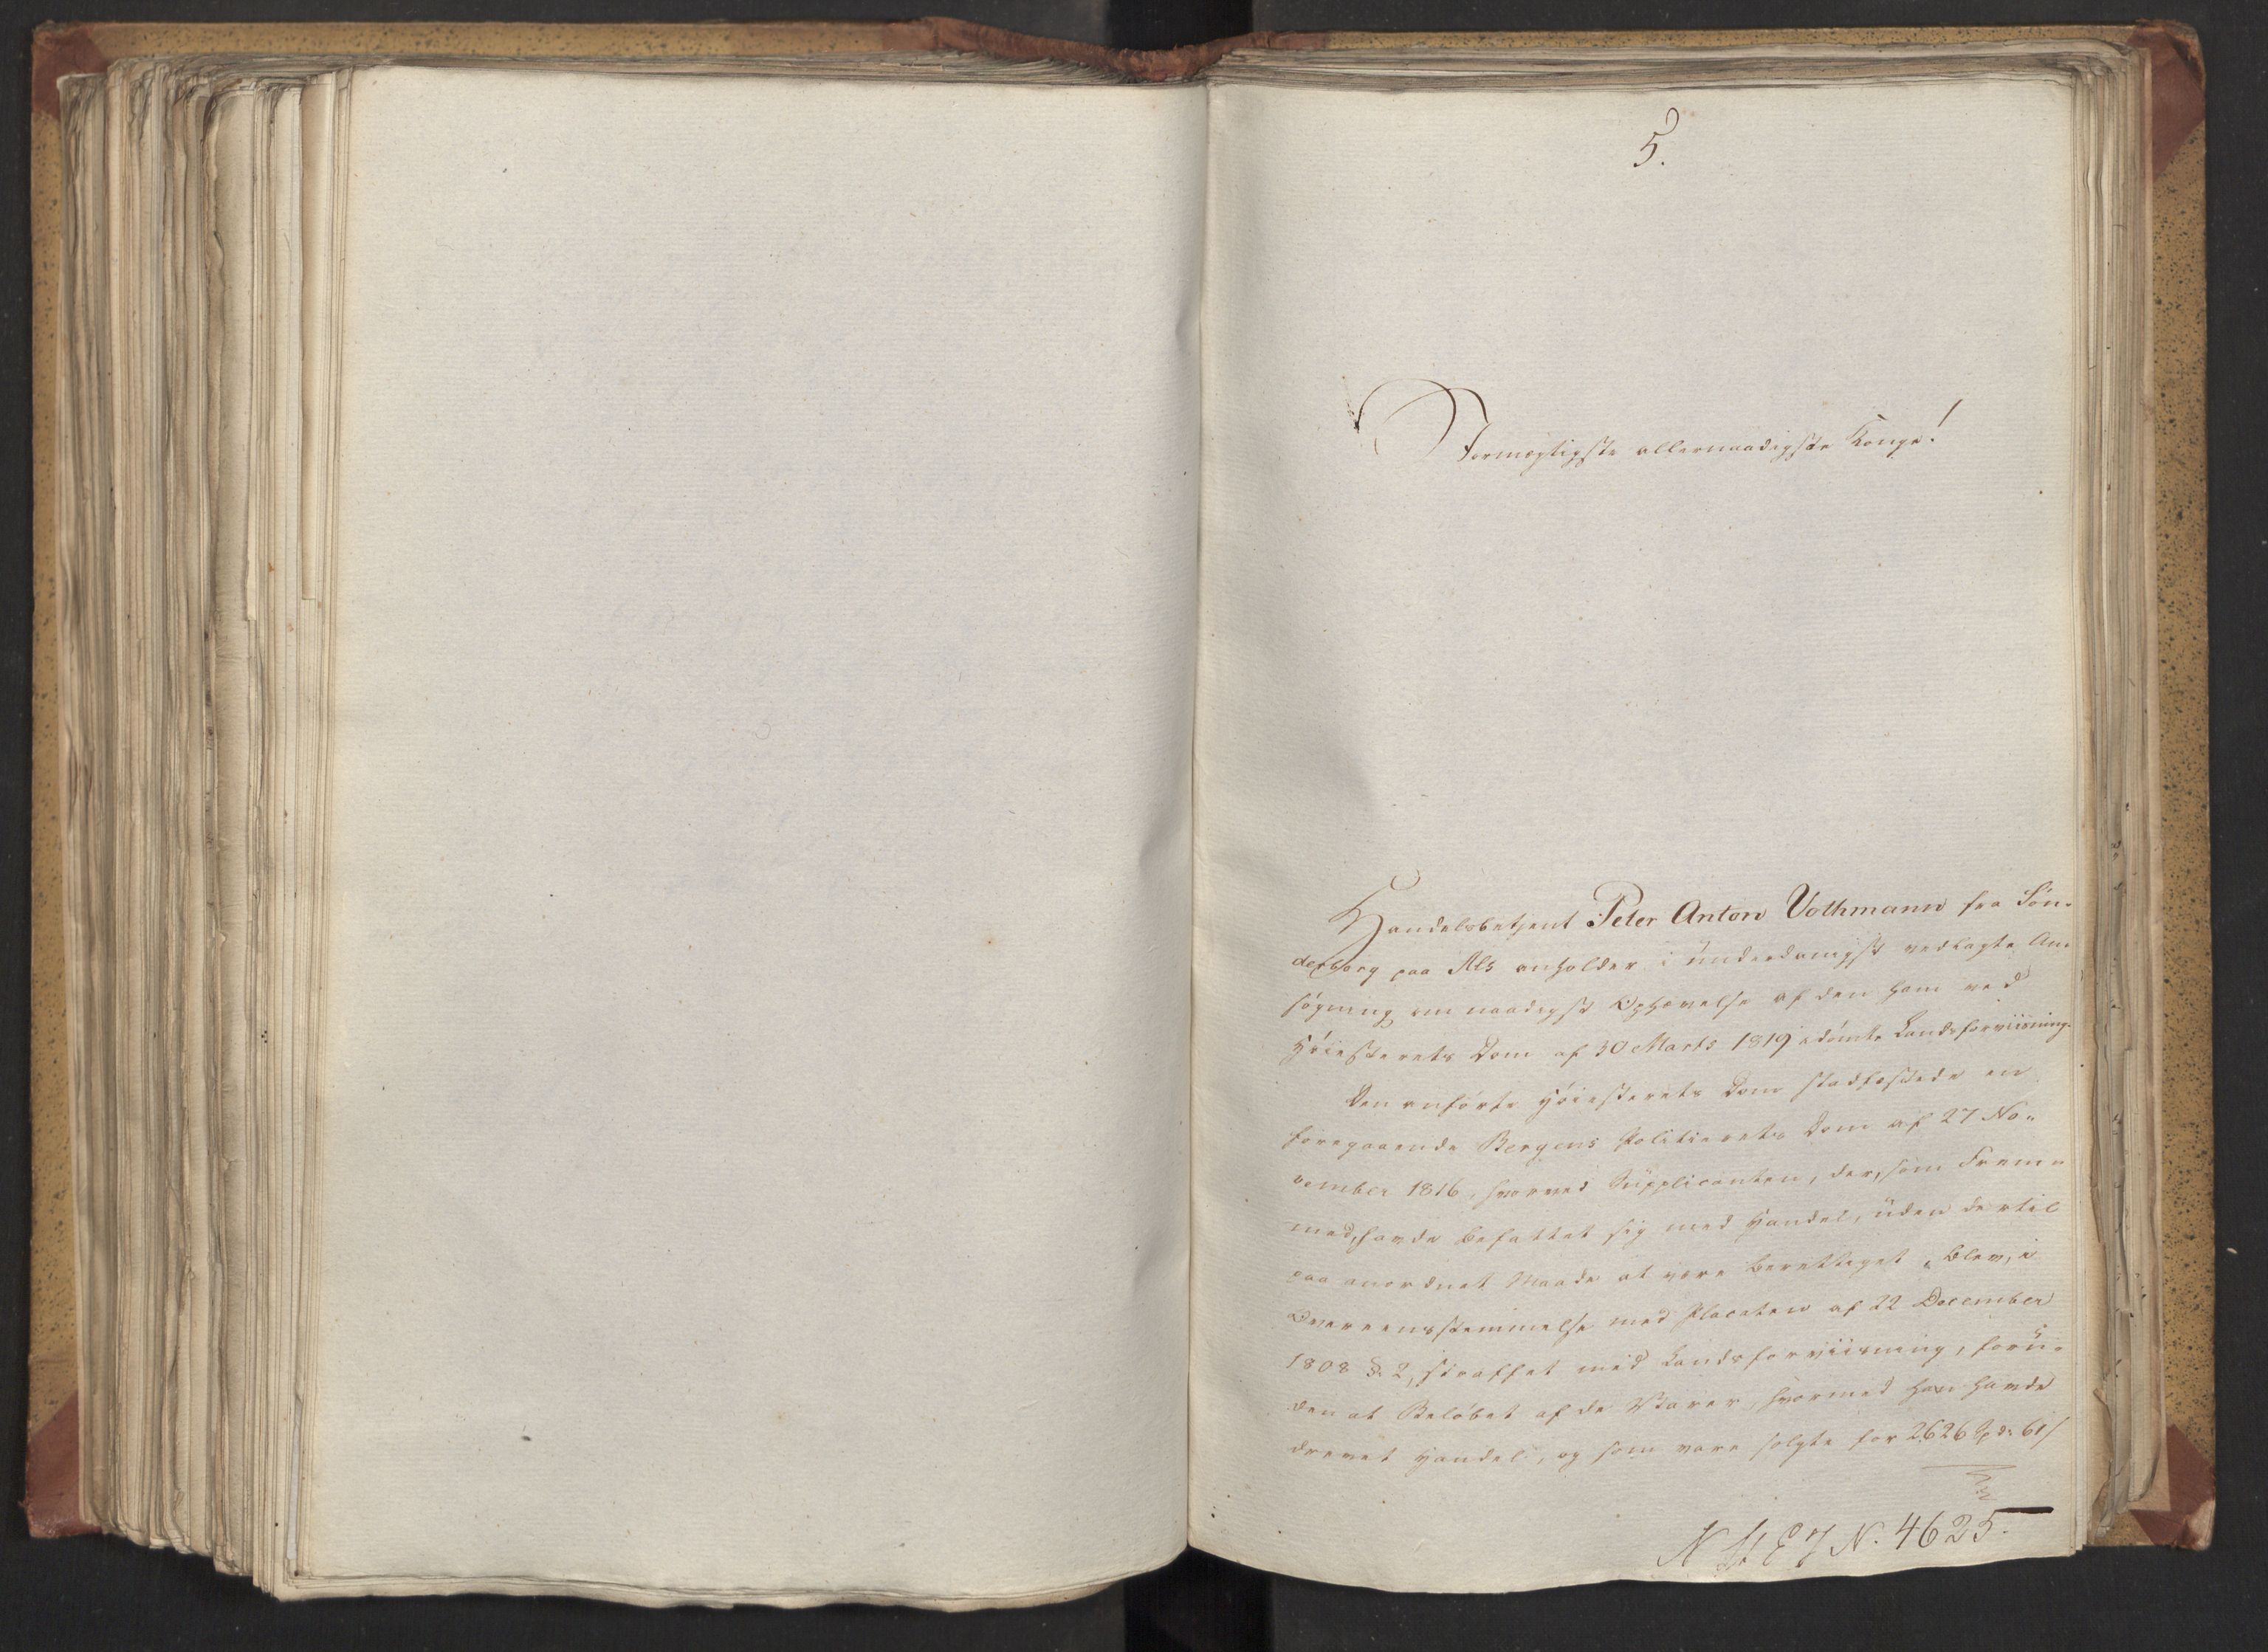 5.
Stormægtigste allernaadigste Konge!
Handelsbetjent Peter Anton Vothmann fra Søn-
derborg paa Als anholder i underdanigst vedlagte An-
søgning om naadigst Ophævelse af den ham ved
Høiesterets Dom af 30 Marts 1819 idømte Landsforviisning.
Den anførte Høiesterets Dom stadfæstede en
foregaaende Bergens Politierets Dom af 27 No-
vember 1816, hvorved Supplicanten, der, som Frem-
med, havde befattet sig med Handel, uden dertil
paa anordnet Maade at være berettiget, blev, i
Overeensstemmelse med Placaten af 22 December
1808 §. 2, straffet med Landsforviisning, foru-
den at Beløbet af de Varer, hvormed han havde
drevet Handel, og som vare solgte for 2626 Spd. 61/
N. 4625.